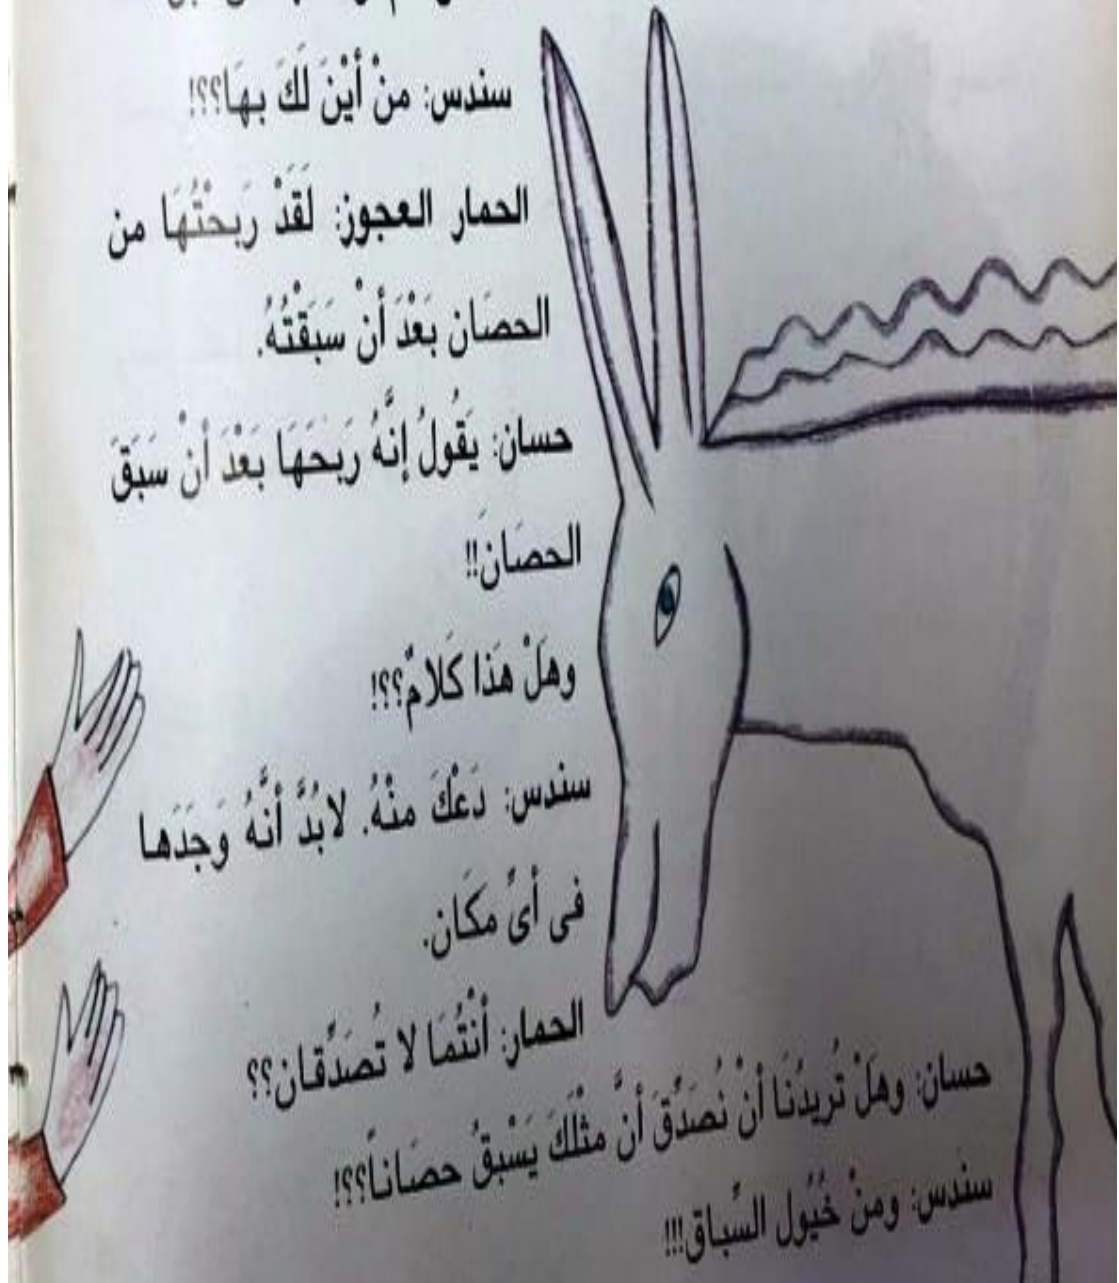 سندس: منْ أيْنَ لَكَ بهَا؟؟!
الحمار العجوز: لَقَدْ رَبحْتُهَا من
الحصَان بَعْدَ أنْ سَبَقْتُهُ.
حسان: يَقُولُ إنَّهُ رَبحَهَا بَعْدَ أنْ سَبَقَ
الحصَانَ!!
وهَلْ هَذا كَلامٌ؟؟!
سندس: دَعْكَ منْهُ. لابُدَّ أنَّهُ وَجَدَها
فى أىِّ مكَان.
الحمار: أنْتُمَا لا تُصَدِّقان؟؟
حسان: وهَلْ تُريدُنَا أنْ نُصَدِّقَ أنَّ مثْلَكَ يَسْبقُ حصَاناً؟؟!
سندس: ومنْ خُيُول السِّباق!!!